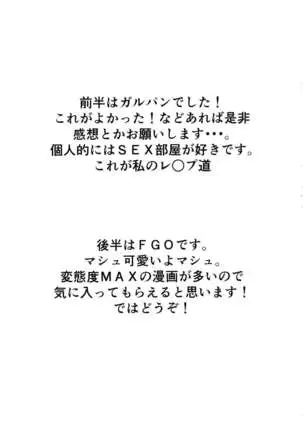 前半はガルパンでした！
これがよかった！などあれば是非
感想とかお願いします・・・。
個人的にはＳＥＸ部屋が好きです。
これが私のレ〇プ道
後半はＦＧＯです。
マシュ可愛いよマシュ。
変態度ＭＡＸの漫画が多いので
気に入ってもらえると思います！
ではどうぞ！